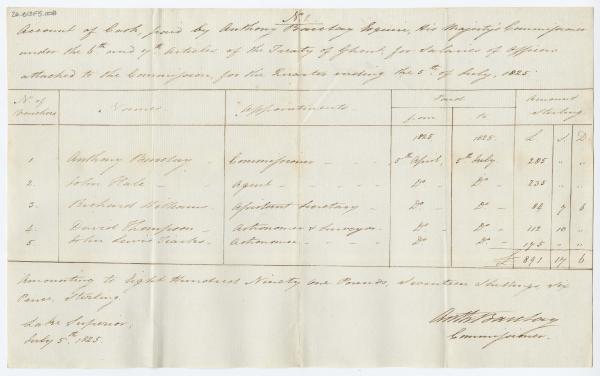 No. 1
Account of Cash, paid by Anthony Barclay Esquire, His Majesty's Commissioner
under the 6th and 7th Articles of the Treaty of Ghent, for Salaries of Officers
attached to the Commission, for the Quarter ending the 5th of July, 1825.
No. of Vouchers Names Appointments Paid Amount Sterling
from to
1825 1825 £ S. D
1 Anthony Barclay Commissioner 5th April, 5th July 285 " "
2. John Hale Agent Do Do 235 " "
3. Richard Williams Assistant Secretary Do Do 84 7 6
4. David Thompson Astronomer & Surveyor Do Do 112 10 "
5. John Lewis Tiarks Astronomer Do Do 175 " "
£ 891 17 6
Amounting to Eight Hundred Ninety one Pounds, Seventeen Shillings, Six
Pence, Sterling.
Lake Superior,
July 5th 1825.
Anth Barclay
Commissioner.